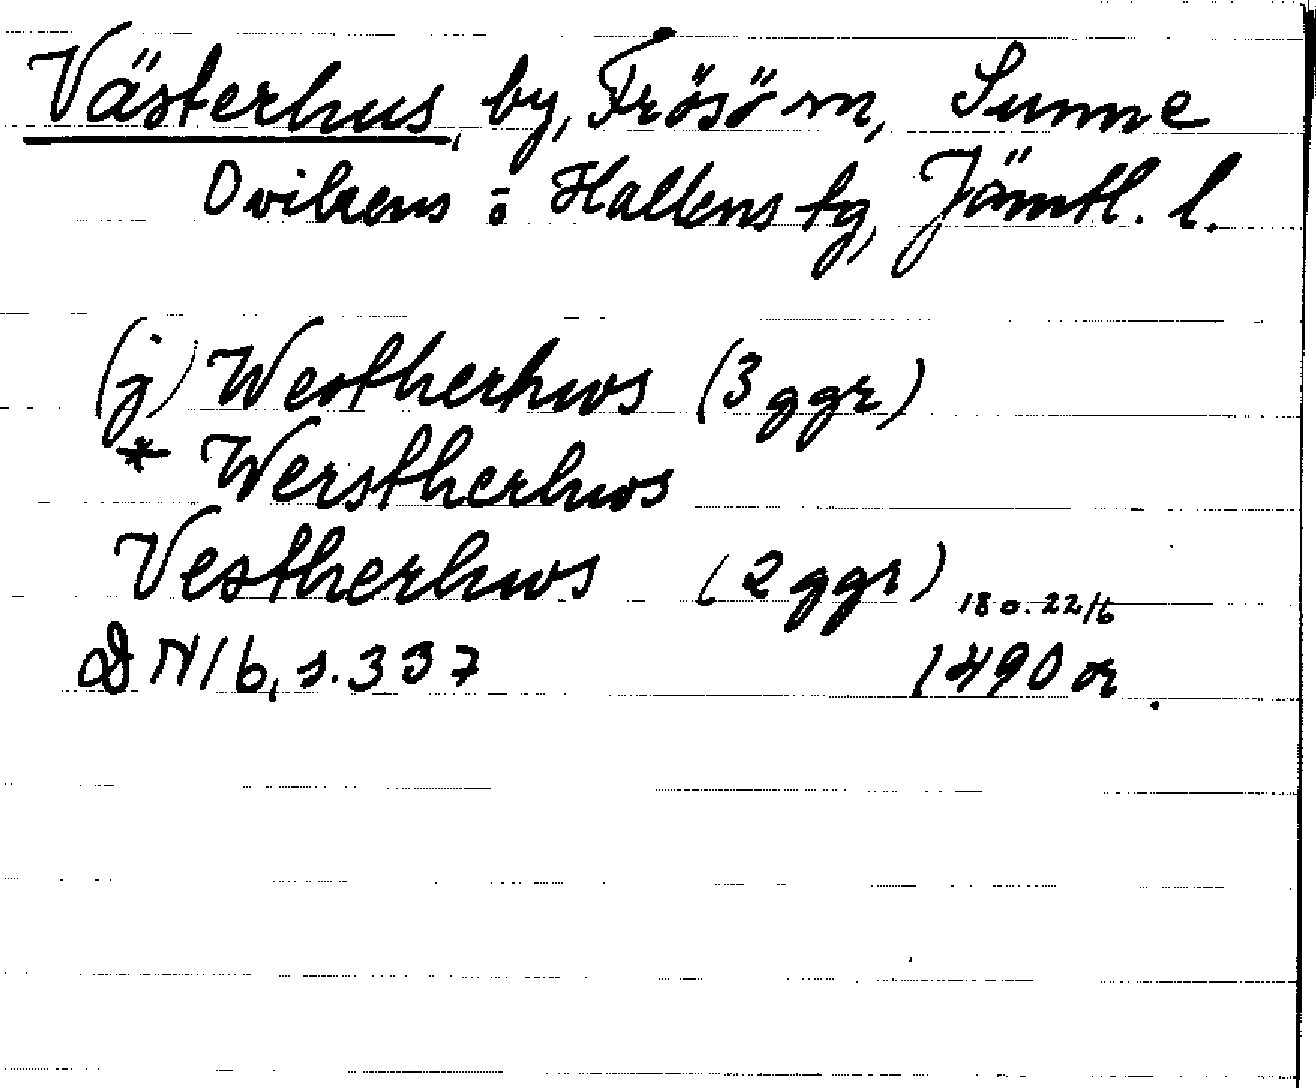 Västerhus, by, Frösö sn, Sunne
Ovikens o Hallens tg, Jämtl. l.
(j) Westherhws (3 ggr)
* Werstherhws
Vestherhws (2 ggr) 18 o. 22/6
DN 16, s. 337 1490 or.